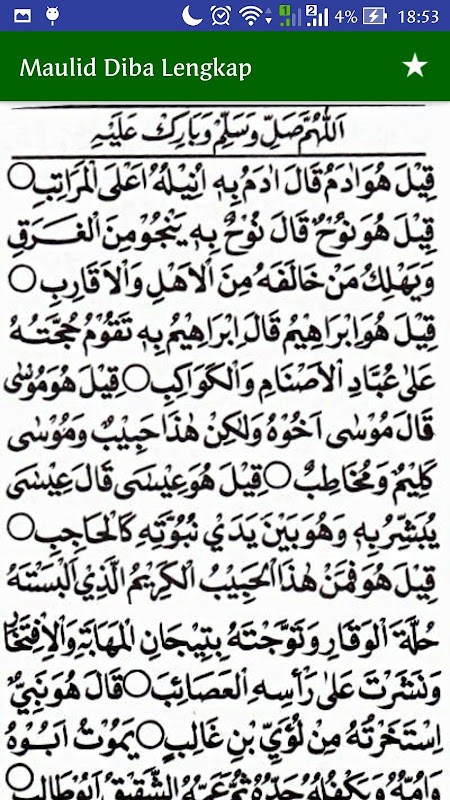 4% 18:53
Maulid Diba Lengkap
اَللّٰهُمَّ صَلِّ وَسَلِّمْ وَبَارِكْ عَلَيْهِ
قِيْلَ هُوَ اٰدَمُ قَالَ اٰدَمُ بِهٖ اُنِيْلُهُ اَعْلَى الْمَرَاتِبِ ○
قِيْلَ هُوَ نُوْحٌ قَالَ نُوْحٌ بِهٖ يَنْجُوْ مِنَ الْغَرَقِ
وَيَهْلِكُ مَنْ خَالَفَهُ مِنَ الْاَهْلِ وَالْاَقَارِبِ ○
قِيْلَ هُوَ اِبْرَاهِيْمُ قَالَ اِبْرَاهِيْمُ بِهٖ تَقُوْمُ حُجَّتُهُ
عَلٰى عُبَّادِ الْاَصْنَامِ وَالْكَوَاكِبِ ○ قِيْلَ هُوَ مُوْسٰى
قَالَ مُوْسٰى اَخُوْهُ وَلٰكِنْ هٰذَا حَبِيْبٌ وَمُوْسٰى
كَلِيْمٌ وَمُخَاطِبٌ ○ قِيْلَ هُوَ عِيْسٰى قَالَ عِيْسٰى
يُبَشِّرُ بِهٖ وَهُوَ بَيْنَ يَدَيْ نُبُوَّتِهٖ كَالْحَاجِبِ ○
قِيْلَ هُوَ فَمَنْ هٰذَا الْحَبِيْبُ الْكَرِيْمُ الَّذِيْ اَلْبَسْتَهُ
حُلَّةَ الْوَقَارِ وَتَوَّجْتَهُ بِتِيْجَانِ الْمَهَابَةِ وَالْاِفْتِخَارِ
وَنَشَرْتَ عَلٰى رَأْسِهِ الْعَصَائِبَ ○ قَالَ هُوَ نَبِيٌّ
اِسْتَخَرْتُهُ مِنْ لُؤَيِّ بْنِ غَالِبٍ ○ يَمُوْتُ اَبُوْهُ
وَاُمُّهُ وَيَكْفُلُهُ جَدُّهُ ثُمَّ عَمُّهُ الشَّقِيْقُ اَبُوْ طَالِبٍ